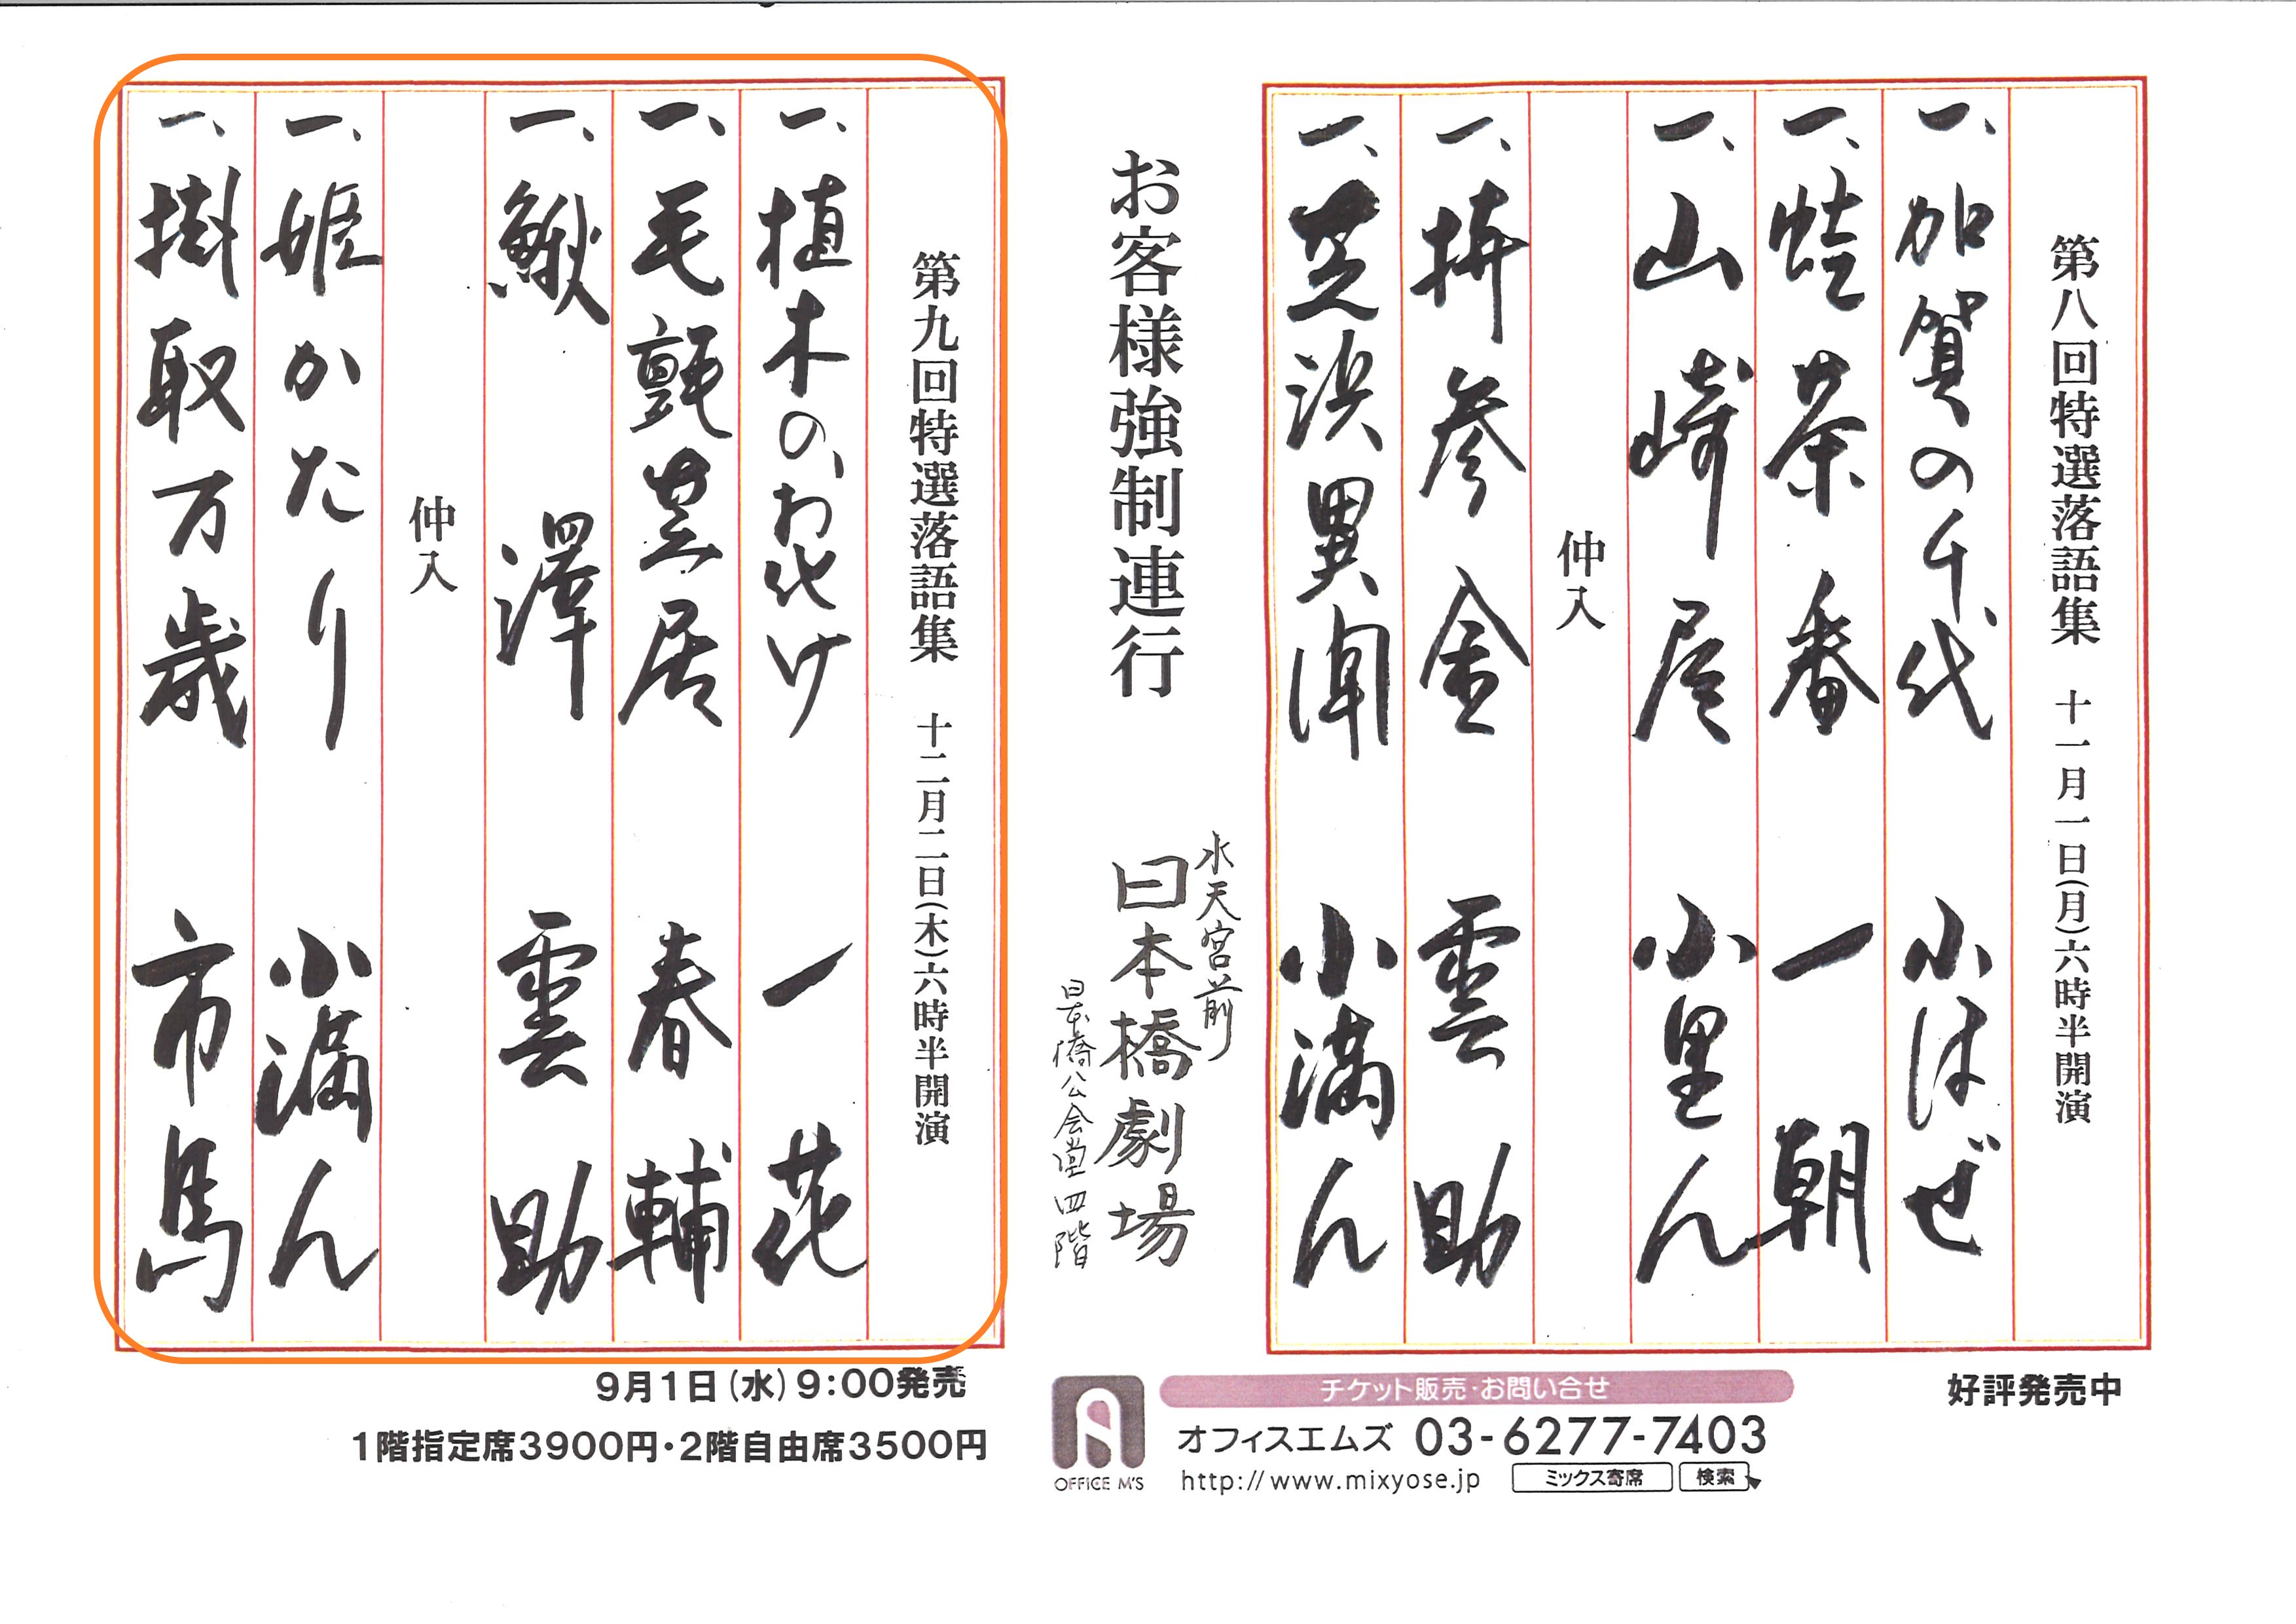 第八回特選落語集　十一月一日(月)六時半開演
一、加賀の千代　小はぜ
一、蛙茶番　一朝
一、山崎屋　小里ん
仲入
一、拼参金　雲助
一、芝浜異聞　小満ん
好評発売中
お客様強制連行
水天宮前
日本橋劇場
日本橋公会堂四階
第九回特選落語集　十二月二日(木)六時半開演
一、植木のお化け　一花
一、毛氈芝居　春輔
一、鰍澤　雲助
仲入
一、姫かたり　小満ん
一、掛取万歳　市馬
9月1日(水)9:00発売
1階指定席3900円・2階自由席3500円
OFFICE M'S
チケット販売・お問い合せ
オフィスエムズ 03-6277-7403
http://www.mixyose.jp ミックス寄席 検索